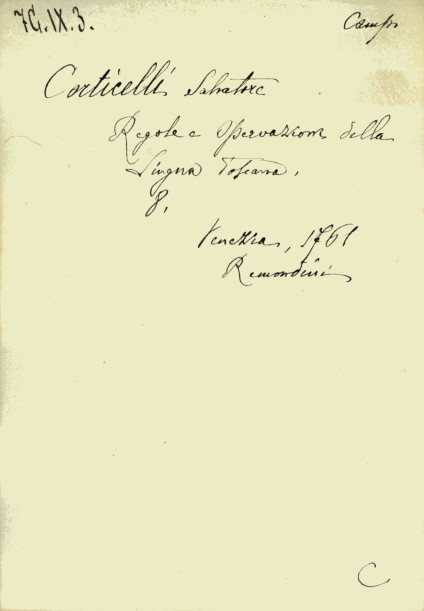 7G.IX.3.
Campo
Corticelli Salvatore
Regole e Osservazioni della
Lingua Toscana,
8,
Venezia, 1761
Remondini
C